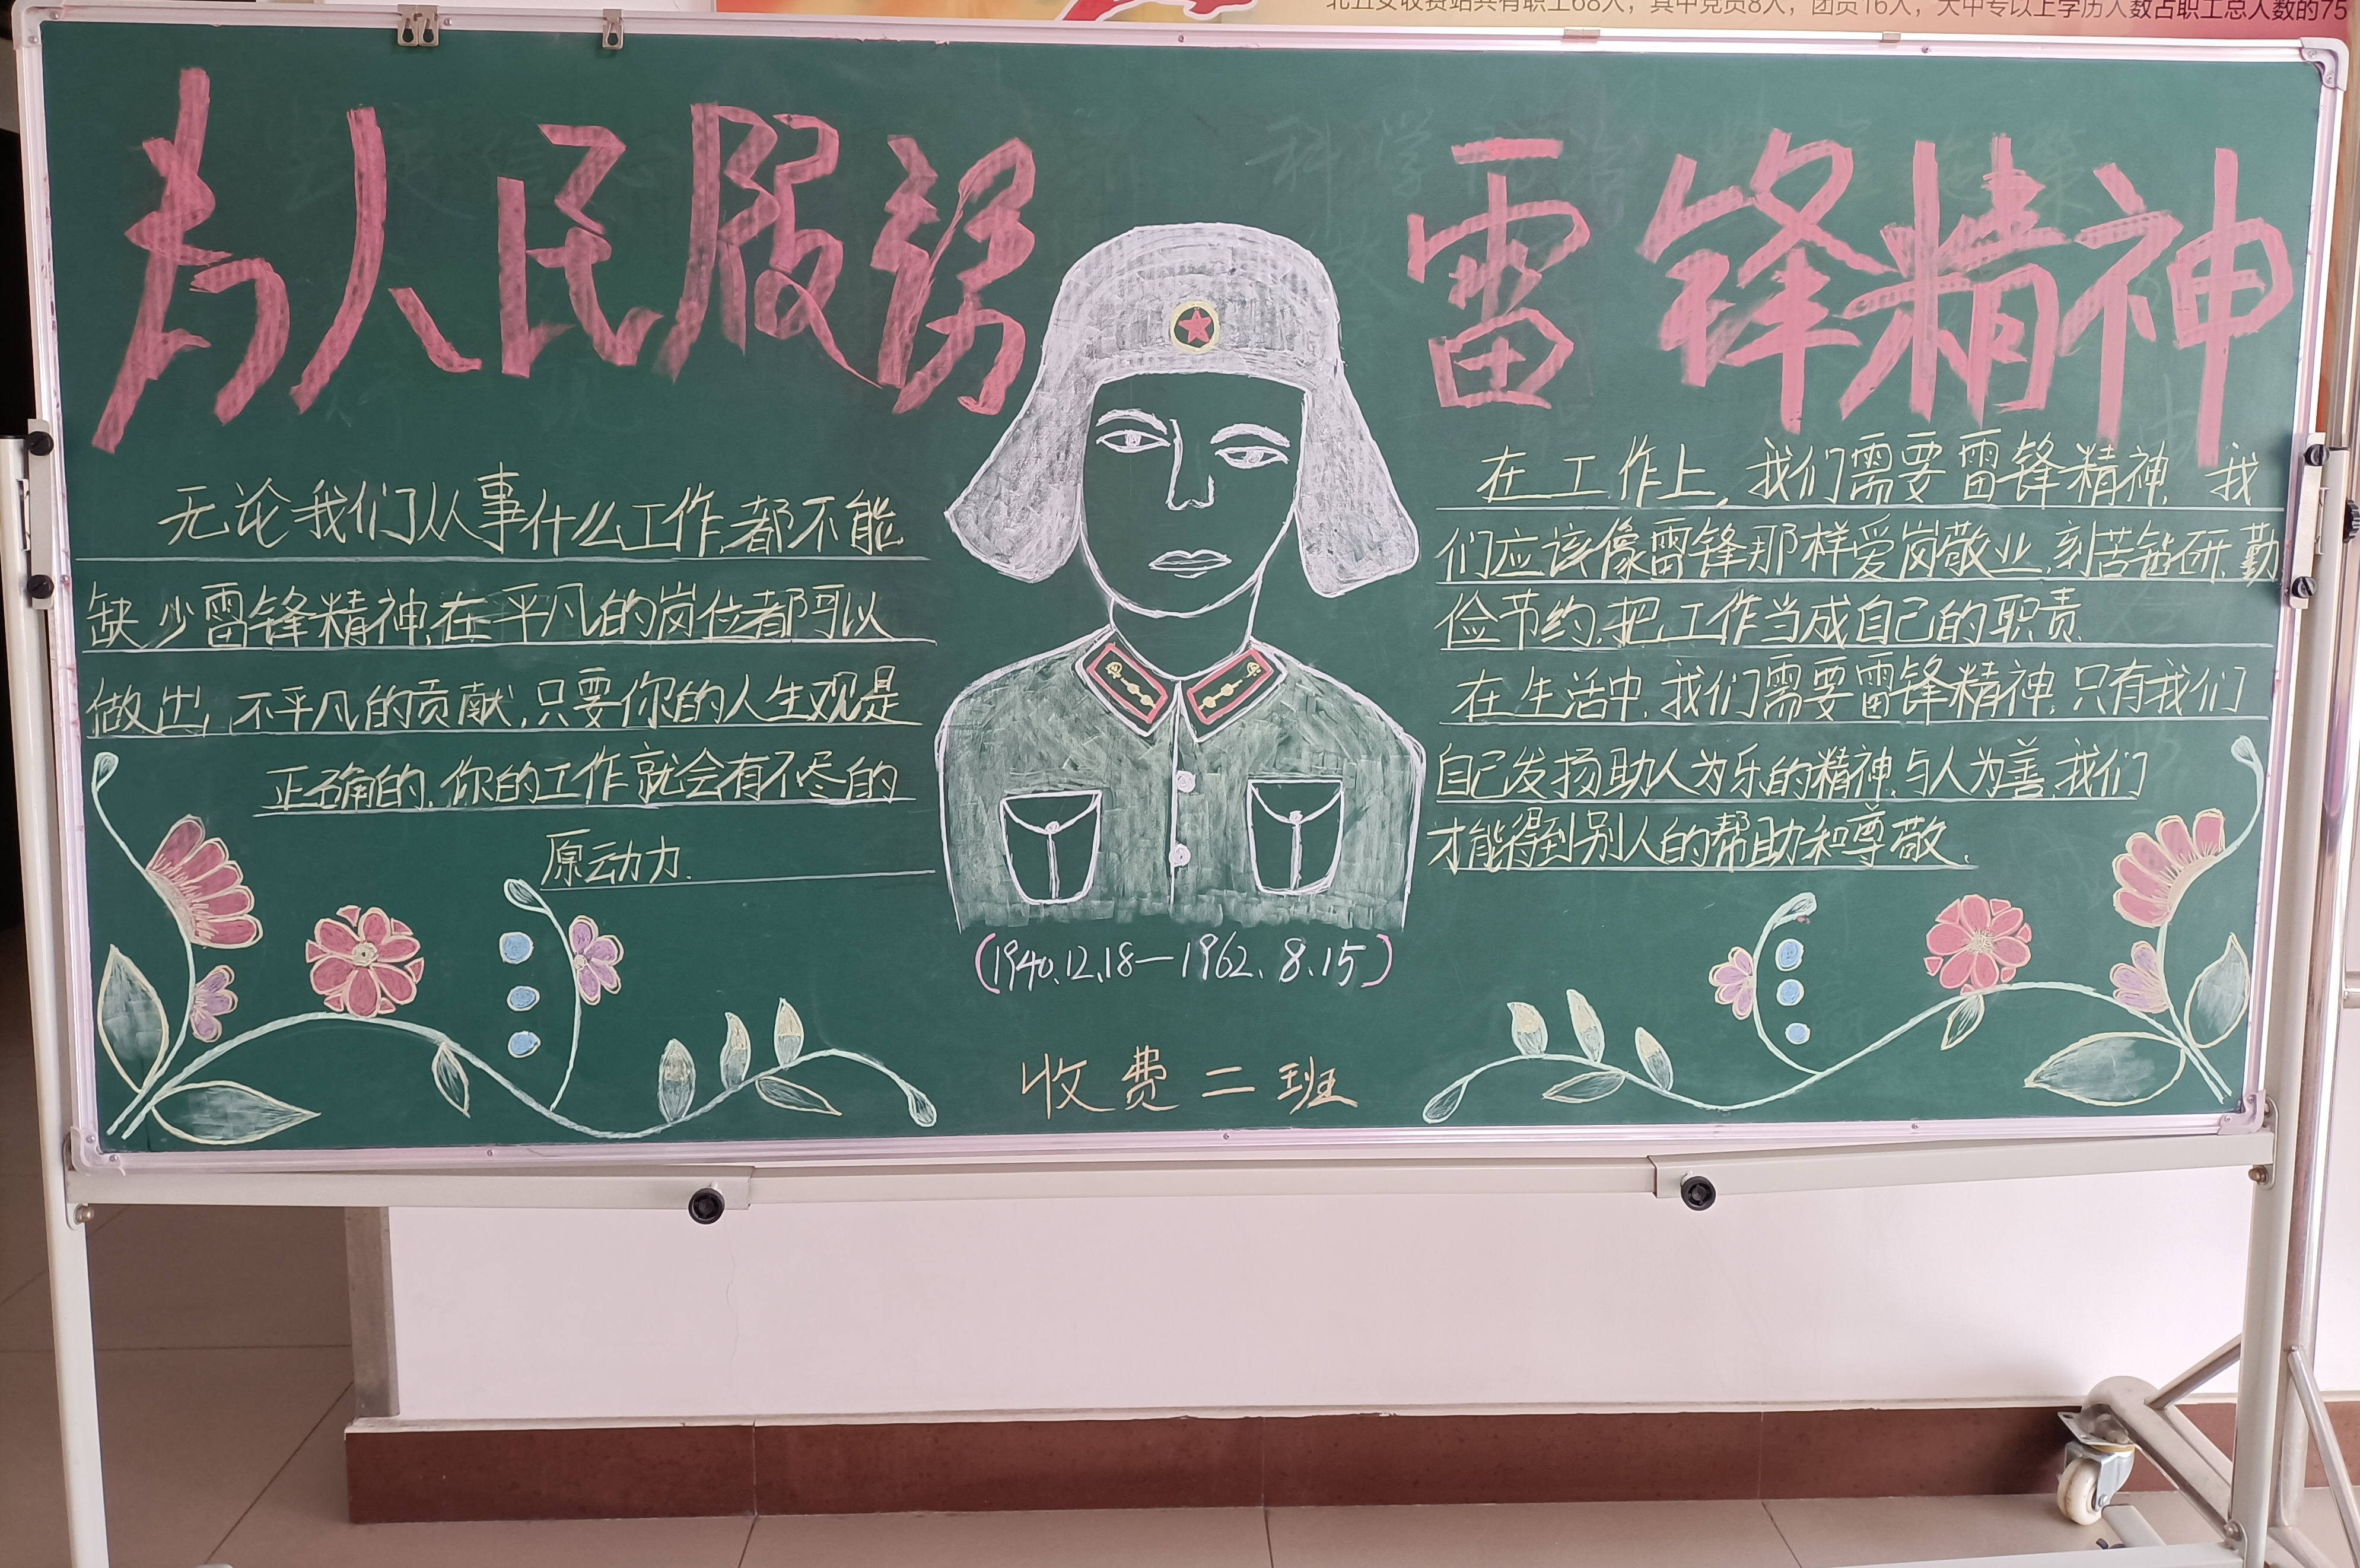 北五女收费站共有职工68人，其中党员8人，团员16人，大中专以上学历人数占职工总人数的75
为人民服务 雷锋精神
无论我们从事什么工作,都不能
缺少雷锋精神,在平凡的岗位都可以
做出,不平凡的贡献,只要你的人生观是
正确的,你的工作就会有不尽的
原动力.
在工作上,我们需要雷锋精神,我
们应该像雷锋那样爱岗敬业,刻苦钻研,勤
俭节约,把工作当成自己的职责
在生活中,我们需要雷锋精神,只有我们
自己发扬助人为乐的精神,与人为善,我们
才能得到别人的帮助和尊敬.
(1940.12.18—1962.8.15)
收费二班